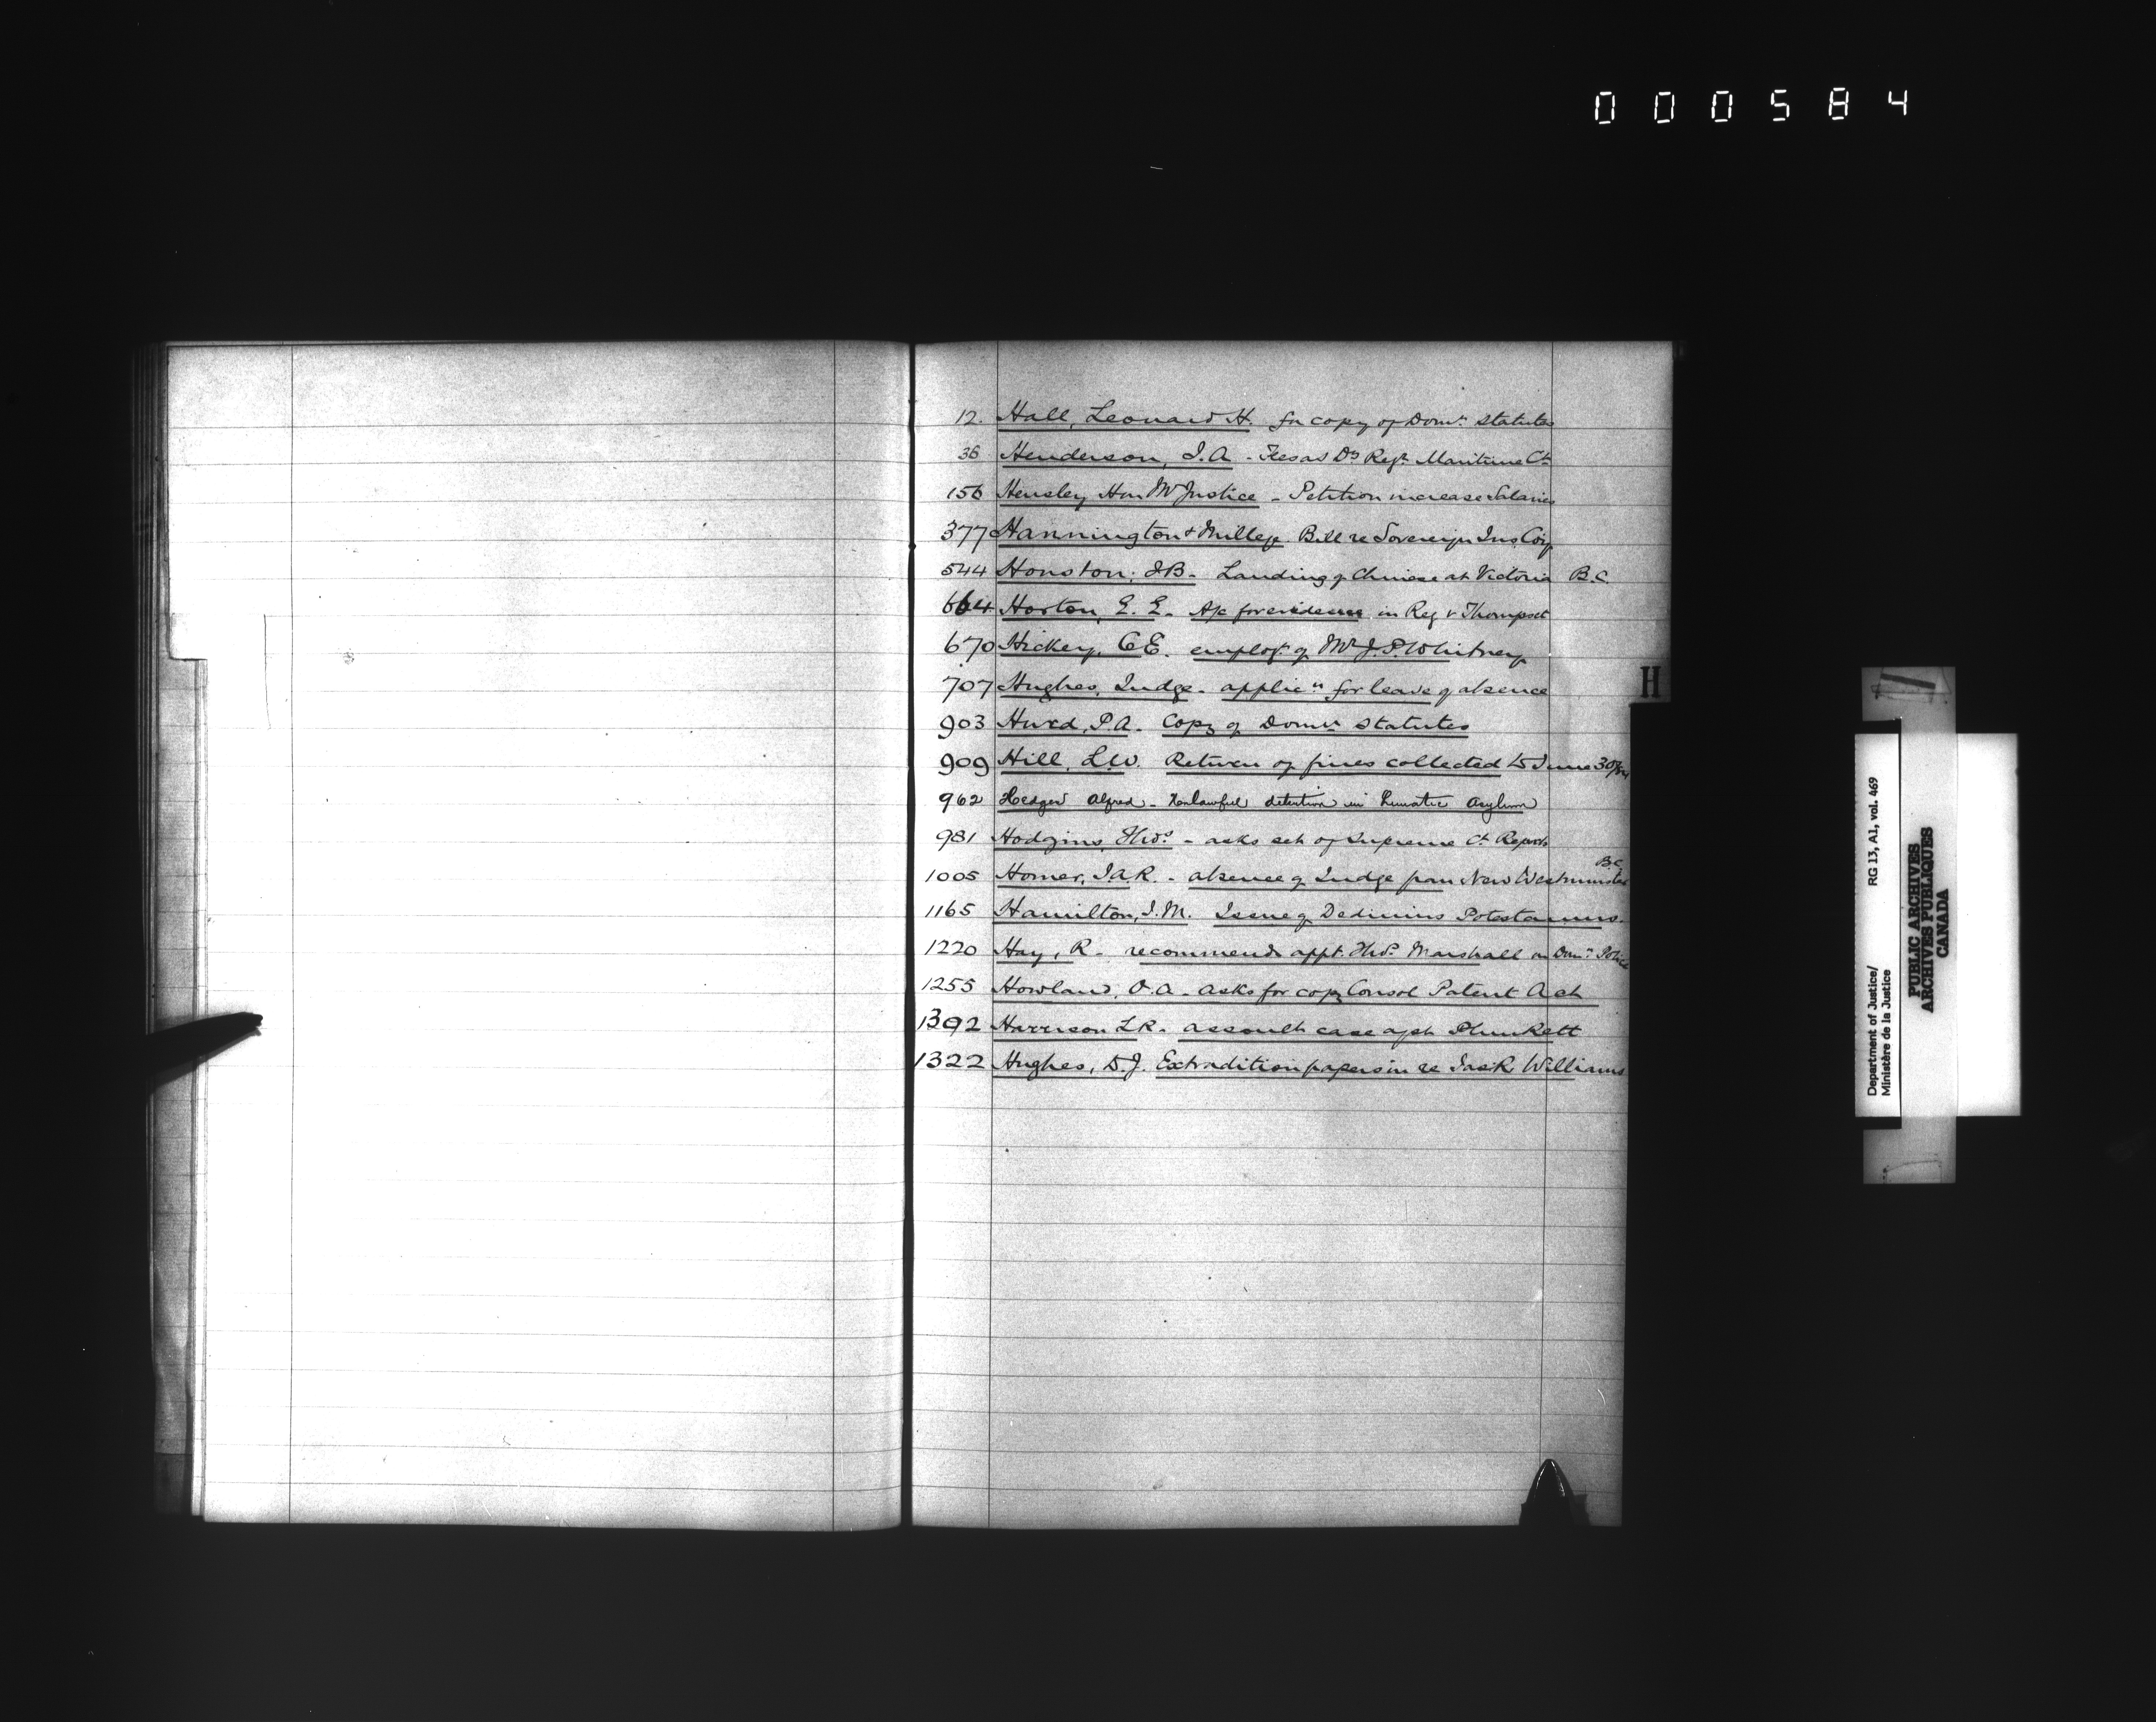 000584
12. Hall, Leonard H. for copy of Domn. Statutes
36 Henderson, J.A - Fees as Dy Regr. Maritime Ct.
156 Hensley Hon Mr Justice - Petition increase Salaries
377 Hannington & Bill re Sovereign Ins Coy
544 Houston, J.B. Landing of Chinese at Victoria B.C.
664. Horton, E. E. - A/c for evidence in Reg v Thompset
670 Hickey, C E. employt. of Mr J. P. Whitney
707 Hughes, Judge - applicn for leave of absence
903 Hurd, P.A. - Copy of Domn Statutes
909 Hill, L.W. Return of fines collected to June 30/84
962 Hedger Alfred - Unlawful detention in Lunatic Asylum
981 Hodgins, Thos. - asks set of Supreme Ct Reports
1005 Homer, J.A.R. - absence of Judge from New Westminster B.C.
1165 Hamilton, J.M. Issue of Dedimus Potestamus.
1220 Hay, R - recommends appt. Thos. Marshall on Domn. Police
1255 Howland, O.A - asks for copy Consol Patent Act
1392 Harrison L R - assault case agst Plunkett
1322 Hughes, D.J. Extradition papers in re Jack Williams
H
Department of Justice/
Ministère de la Justice
RG 13, A1, vol. 469
PUBLIC ARCHIVES
ARCHIVES PUBLIQUES
CANADA